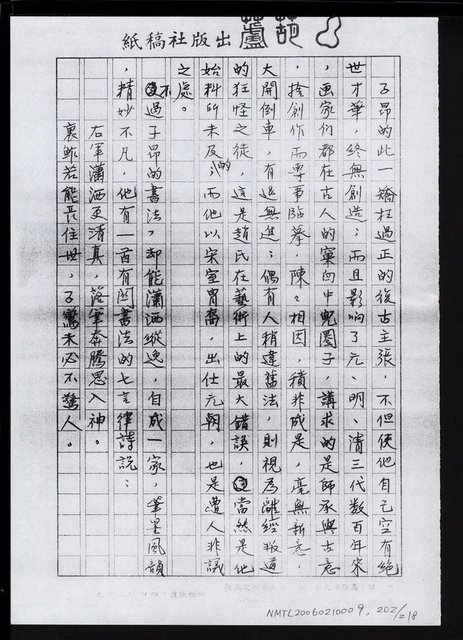 葫蘆出版社稿紙
子昂的此一矯枉過正的復古主張，不但使他自己空有絕
世才華，終無創造；而且影響了元、明、清三代數百年宋
，画家们都在古人的窠臼中兜圈子，講求的是師承與古意
，捨創作而專事臨摹，陳陳相因，積非成是，毫無新意，
大開倒車，有退無進；偶有人稍違舊法，則視為離經叛道
的狂怪之徒，這是趙氏在藝術上的最大錯誤，當然是他
始料所未及的；而他以宋室胄裔，出仕元朝，也是遭人非議
之處。
不過子昂的書法，却能瀟洒縱逸，自成一家，筆墨風韻
，精妙不凡，他有一首有関書法的七言律詩説：
右軍瀟洒更清真，落筆奔騰思入神。
裹鮓若能長住世，子鸞未必不驚人。
NMTL20060210009, 202/218